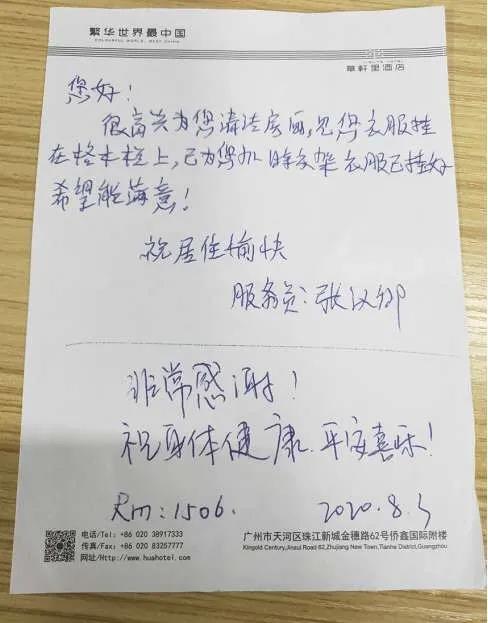 繁华世界最中国
COLOURFUL WORLD, BEST CHINA
華軒里酒店
您好!
很高兴为您清洁房间,见您衣服挂
在格木栏上,已为您加 衣架衣服已挂好
希望能满意!
祝居住愉快
服务员:张汉卿
非常感谢!
祝身体健康、平安喜乐!
Rm:1506.
2020.8.3
电话/Tel: +86 020 38917333
传真/Fax: +86 020 83257777
网址/Http: www.huahotel.com
广州市天河区珠江新城金穗路62号侨鑫国际附楼
Kingold Century,Jinsui Road 62,Zhujiang New Town,Tianhe District,Guangzhou